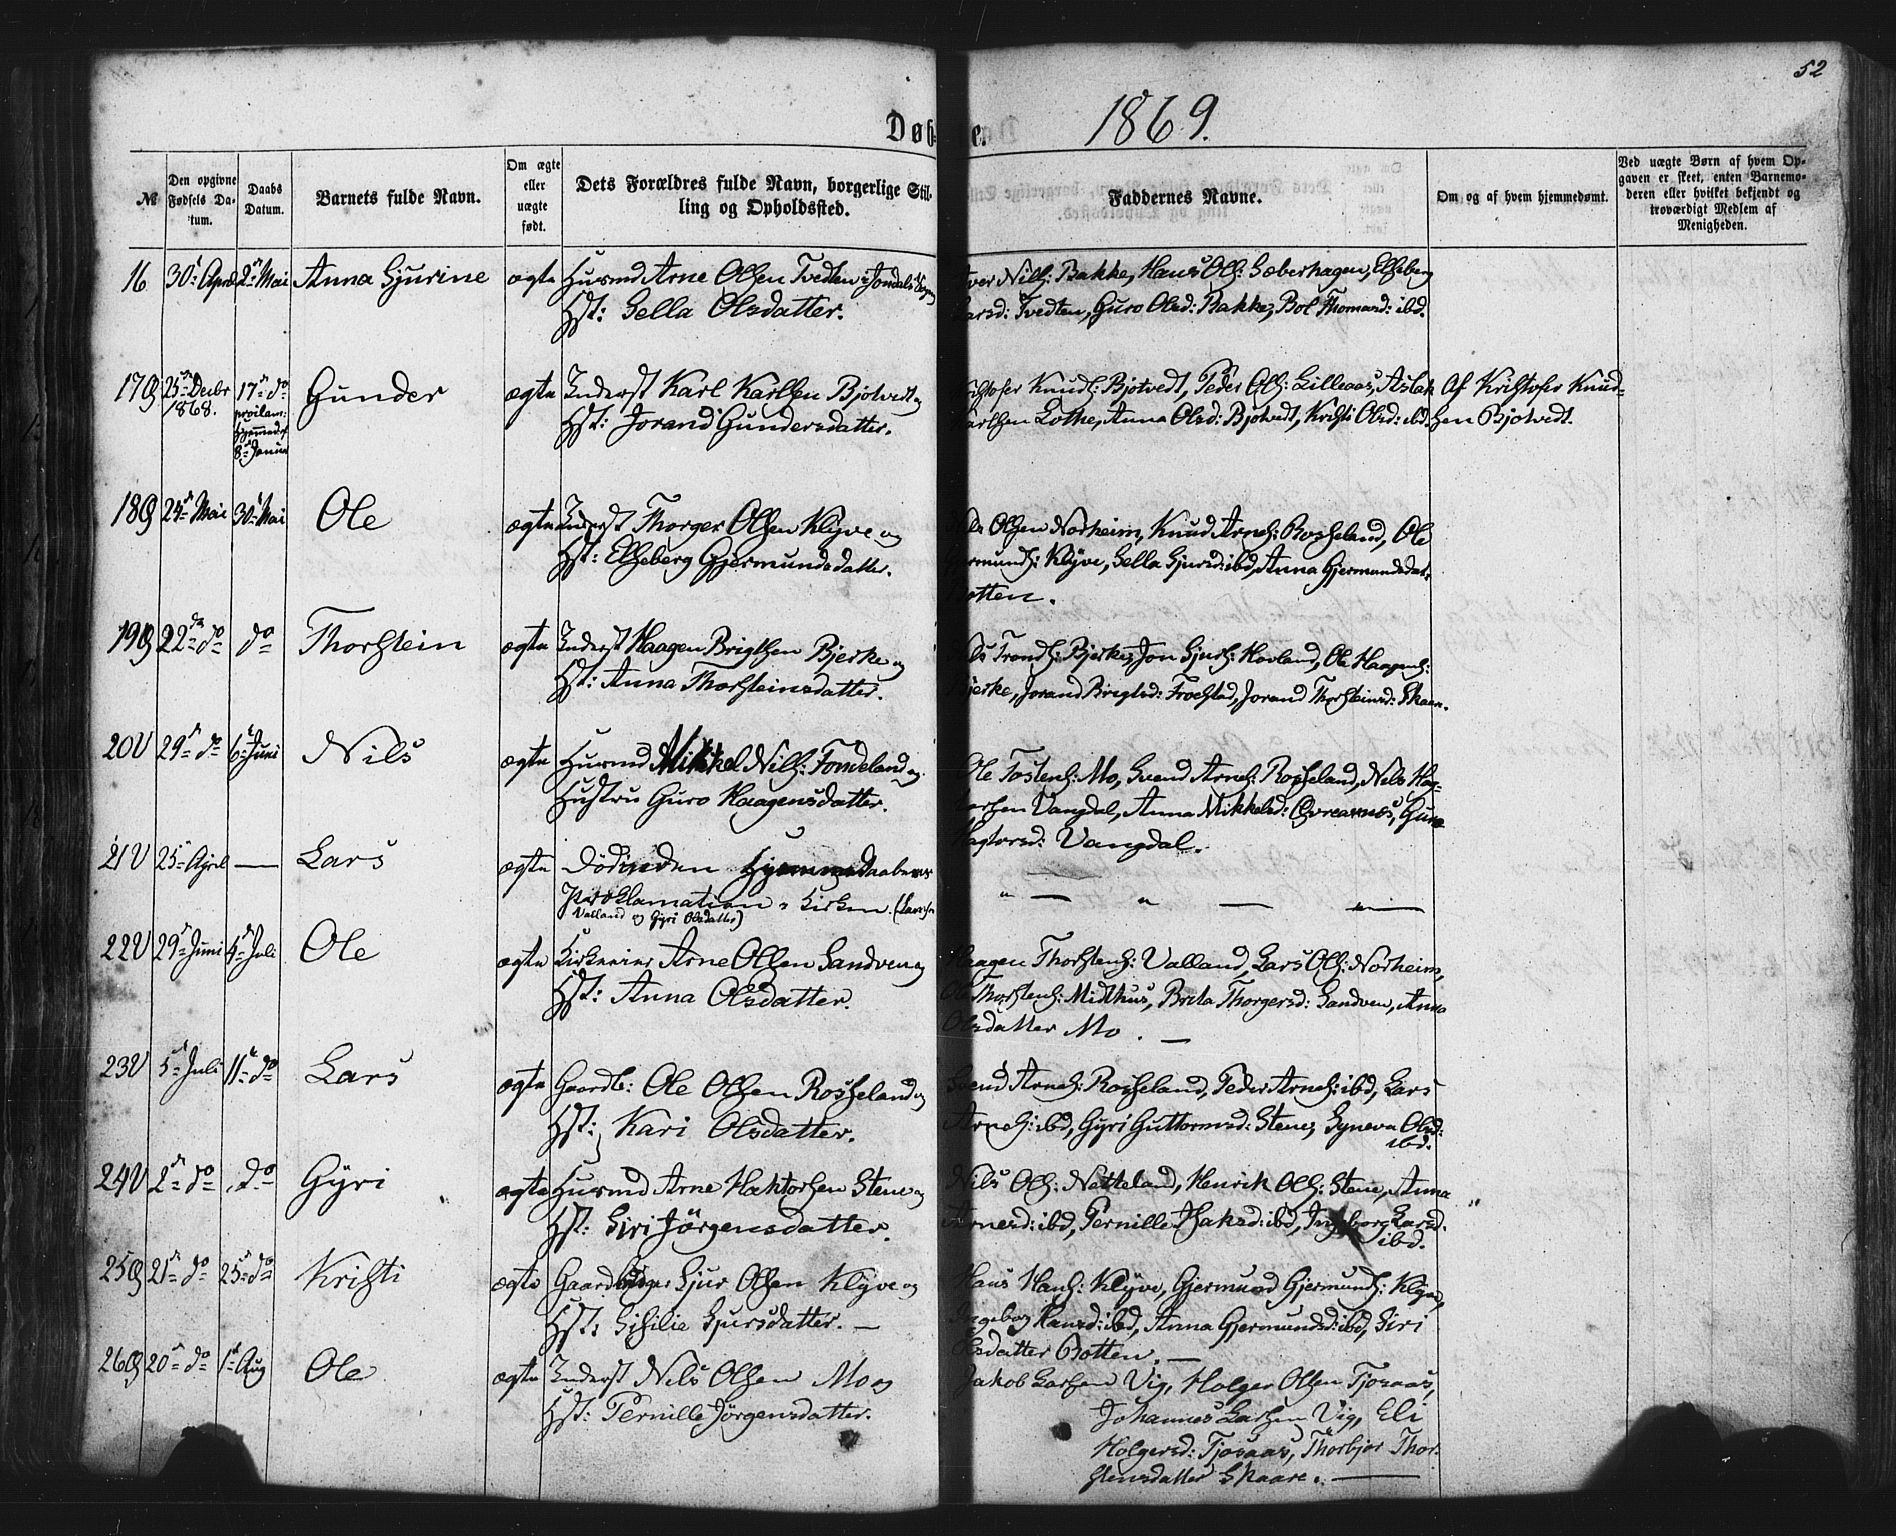 52
Døb e.
1869.
№
Den opgivne Fødsels Datum.
Daabs Datum.
Barnets fulde Navn.
Om ægte eller uægte født.
Dets Forældres fulde Navn, borgerlige Stilling og Opholdssted.
Faddernes Navne.
Om og af hvem hjemmedømt.
Ved uægte Børn af hvem Opgaven er skeet, enten Barnemoderen eller hvilket bekjendt og troværdigt Medlem af Menigheden.
16 30 April 2 Mai Anna Sjurine ægte Husmd Arne Olsen Tvedten i Jondals
Hst: Sella Olsdatter.
Iver Nils: Bakke, Hans Ols: Sæberhagen, Elseberg
Larsd: Tvedten, Guro Olsd: Bakke, Bol Thomasd: ibd.
17 25de Decbr 1868. 17de do Gunder ægte Inderst Karl Karlsen Bjotvedt og
8de Januar
Hst: Jorand Gundersdatter.
Kristofer Knuds: Bjotvedt, Peder Ols: Lilleaas, Aslak
Karlsen Lothe, Anna Olsd: Bjotvedt, Kristi Olsd: ibd.
Af Kristofer Knud-
sen Bjotvedt.
18 24 Mai 30 Mai Ole ægte Inderst Thorger Olsen Klyve og
Hst: Elseberg Gjermundsdatter.
Olsen Norheim, Knud Arnes: Rosseland, Ole
Gjermunds: Klyve, Sella Sjursd: ibd, Anna Gjermundsdat:
Botten.
19 22de do do Thorstein ægte Inderst Haagen Brigtsen Bjerke og
Hst: Anna Thorsteinsdatter.
Nils Tronds: Bjerke, Jon Sjurs: Hovland, Ole Haagens:
Bjerke, Jorand Brigtsd: Froestad, Jorand Thorsteinsd: Skaar.
20V 29 do 6 Juni Nils ægte Husmd Mikkel Nils: Tomdeland og
Hustru Guro Haagensdatter.
Ole Tostens: Mo, Svend Arnes: Rosseland, Nils Hag-
torsen Vangdal, Anna Mikkelsd: Øvreaanes, Guro
Hagtorsd: Vangdal.
21V 25 April — Lars ægte Død inden Hjemmedaabens
Proklamation i Kirken. (Lars
Valland og Gyri Olsdatter)
" — " — " —
22V 29 Juni 4 Juli Ole ægte Kirkesanger Arne Olsen Sandven og
Hst: Anna Olsdatter.
Haagen Thorstens: Valland, Lars Ols: Norheim,
Ole Thorstens: Midthus, Brita Thorgersd: Sandven, Anna
Olsdatter Mo. —
23V 5 Juli 11 do Lars ægte Gaardb: Ole Olsen Rosseland og
Hst: Kari Olsdatter.
Svend Arnes: Rosseland, Peder Arnes: ibd, Lars
Arnes: ibd, Gyri Guttormsd: Stene, Syneva Olsd:
ibd.
24V 2 do do Gyri ægte Husmd Arne Haktorsen Stene og
Hst: Siri Jörgensdatter.
Nils Ols: Netteland, Henrik Ols: Stene, Anna
Arnesd: ibd, Pernille Isaksd: ibd, Ingeborg Larsd.
ibd.
"
25 21 do 25 do Kristi ægte Gaardbruger Sjur Olsen Klyve og
Hst: Sisilie Sjursdatter. —
Hans Hans: Klyve, Gjermund Gjermunds: Klyve,
Ingeborg Hansd: ibd, Anna Gjermundsd: ibd, Siri
Olsdatter Botten. —
26 20 do 1 Aug Ole ægte Inderst Nils Olsen Mo og
Hst: Pernille Jörgensdatter.
Jakob Larsen Vig, Holger Olsen Tjosaas,
Johannes Larsen Vig, Eli
Holgersd: Tjosaas, Thorbjor Thor-
stensdatter Skaare. —